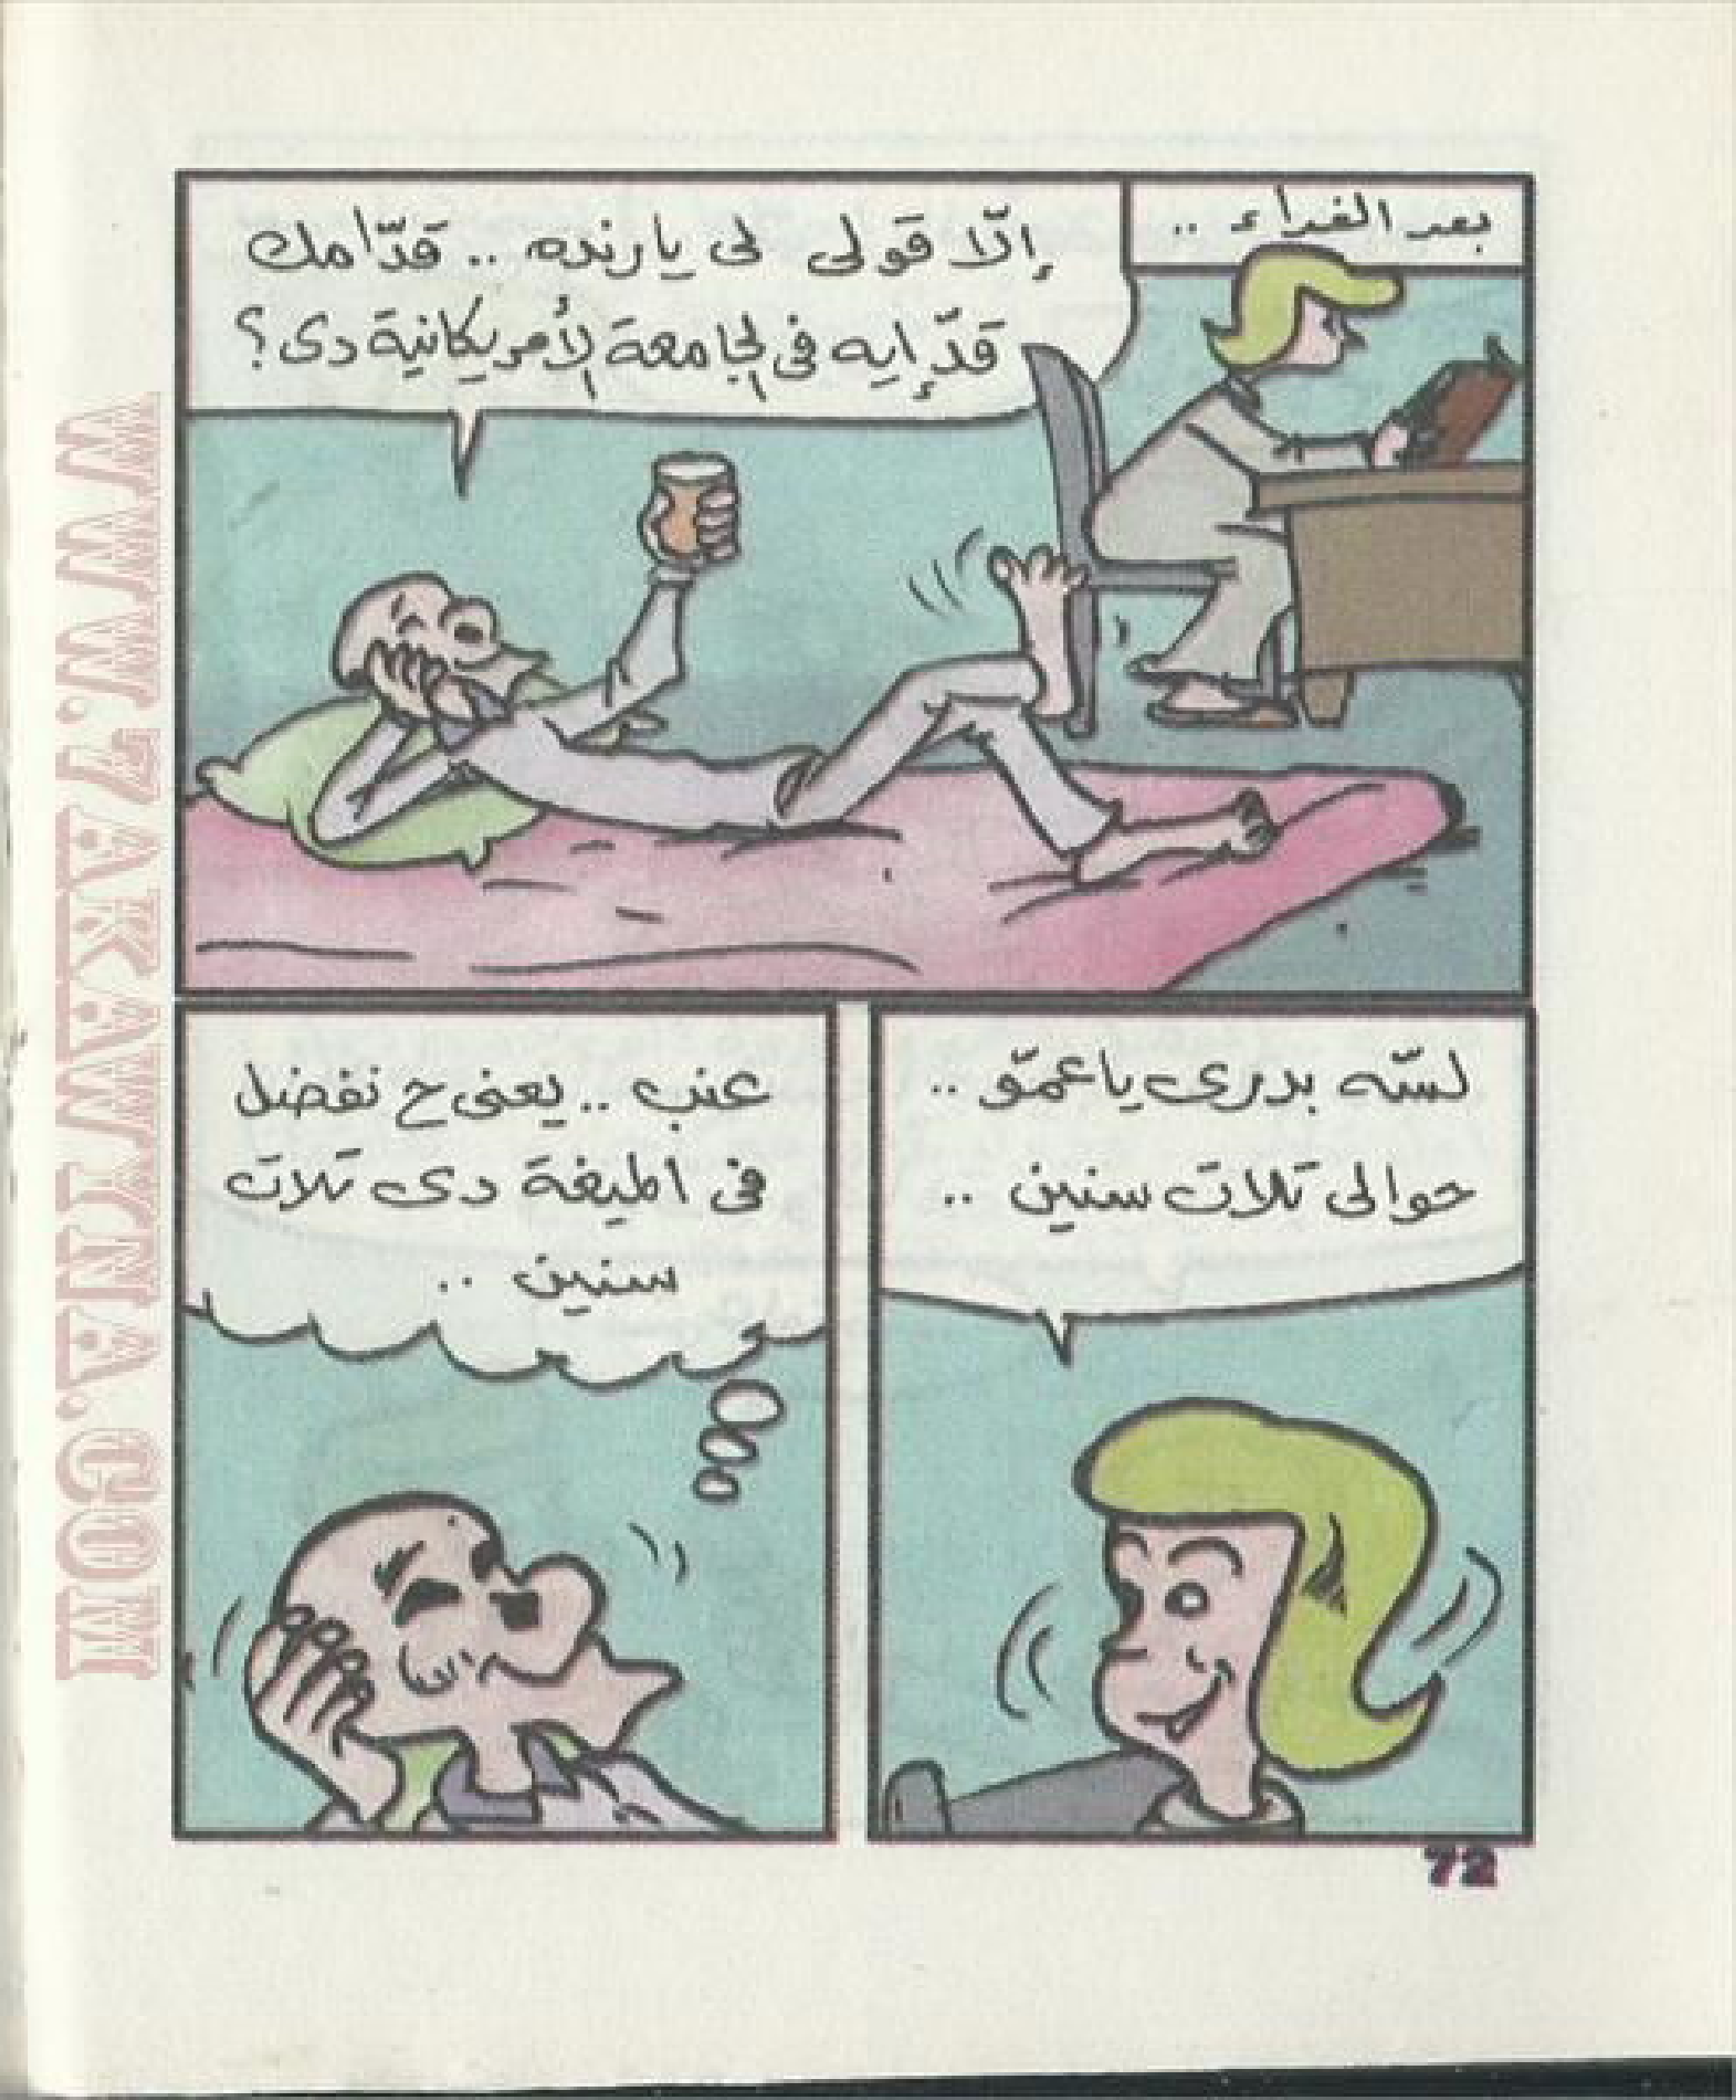 بعد الغداء ..
إلّا قولى لى يا رنده .. قدّامك
قدّ إيه فى الجامعة الأمريكانية دى؟
لسّه بدرى يا عمّو ..
حوالى تلات سنين ..
عنب .. يعنى ح نفضل
فى الميغة دى تلات
سنين ..
72
WWW.7AKAWITNA.COM